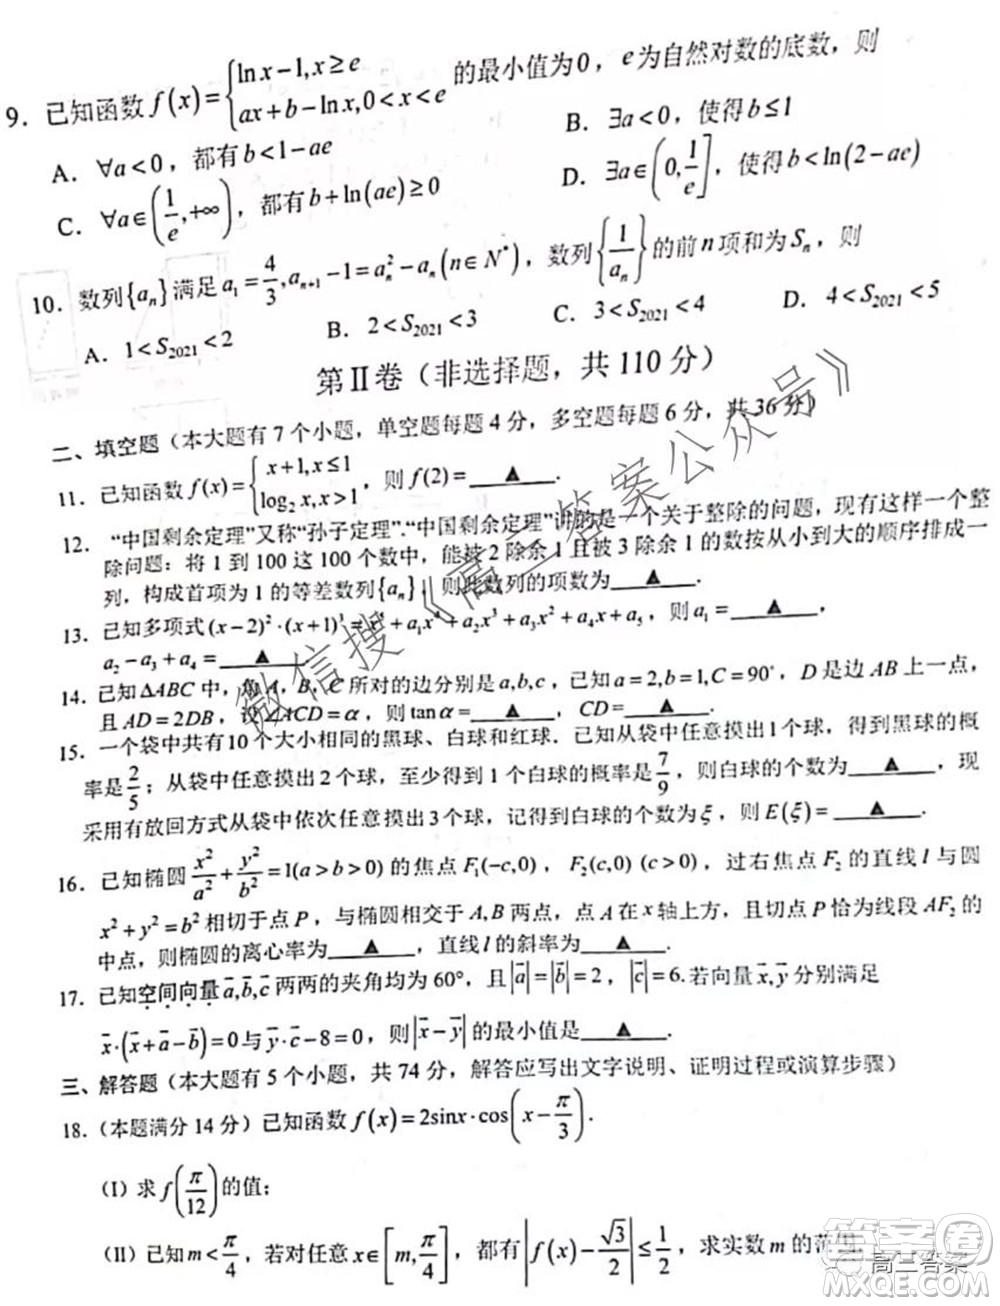 9. 已知函数 f(x)={lnx−1, x≥e; ax+b−lnx, 0<x<e 的最小值为0，e为自然对数的底数，则
A. ∀a<0，都有b<1−ae
B. ∃a<0，使得b≤1
C. ∀a∈(1/e,+∞)，都有b+ln(ae)≥0
D. ∃a∈(0,1/e]，使得b<ln(2−ae)
10. 数列{aₙ}满足 a₁=4/3, aₙ₊₁−1=aₙ²−aₙ(n∈N*)，数列{1/aₙ}的前n项和为Sₙ，则
A. 1<S₂₀₂₁<2 B. 2<S₂₀₂₁<3 C. 3<S₂₀₂₁<4 D. 4<S₂₀₂₁<5
第Ⅱ卷（非选择题，共110分）
二、填空题（本大题有7个小题，单空题每题4分，多空题每题6分，共36分）
11. 已知函数f(x)={x+1, x≤1; log₂x, x>1，则f(2)=▲
12. “中国剩余定理”又称“孙子定理”.“中国剩余定理”讲的是一个关于整除的问题，现有这样一个整
除问题：将1到100这100个数中，能被2除余1且被3除余1的数按从小到大的顺序排成一
列，构成首项为1的等差数列{aₙ}，则此数列的项数为▲.
13. 已知多项式(x−2)²·(x+1)³=x⁵+a₁x⁴+a₂x³+a₃x²+a₄x+a₅，则a₁=▲，
a₂−a₃+a₄=▲.
14. 已知ΔABC中，角A, B, C所对的边分别是a,b,c，已知a=2,b=1,C=90°，D是边AB上一点，
且AD=2DB，设∠ACD=α，则tanα=▲，CD=▲.
15. 一个袋中共有10个大小相同的黑球、白球和红球．已知从袋中任意摸出1个球，得到黑球的概
率是2/5；从袋中任意摸出2个球，至少得到1个白球的概率是7/9，则白球的个数为▲，现
采用有放回方式从袋中依次任意摸出3个球，记得到白球的个数为ξ，则E(ξ)=▲.
16. 已知椭圆x²/a²+y²/b²=1(a>b>0)的焦点F₁(−c,0)，F₂(c,0) (c>0)，过右焦点F₂的直线l与圆
x²+y²=b²相切于点P，与椭圆相交于A,B两点，点A在x轴上方，且切点P恰为线段AF₂的
中点，则椭圆的离心率为▲，直线l的斜率为▲.
17. 已知空间向量a,b,c两两的夹角均为60°，且|a|=|b|=2，|c|=6.若向量x,y分别满足
x·(x+a−b)=0与y·c−8=0，则|x−y|的最小值是▲.
三、解答题（本大题有5个小题，共74分，解答应写出文字说明、证明过程或演算步骤）
18.（本题满分14分）已知函数f(x)=2sinx·cos(x−π/3).
(I) 求f(π/12)的值；
(II) 已知m<π/4，若对任意x∈[m,π/4]，都有|f(x)−√3/2|≤1/2，求实数m的范围.
微信搜《高三答案公众号》
答案圈
高三答案
MXQE.COM